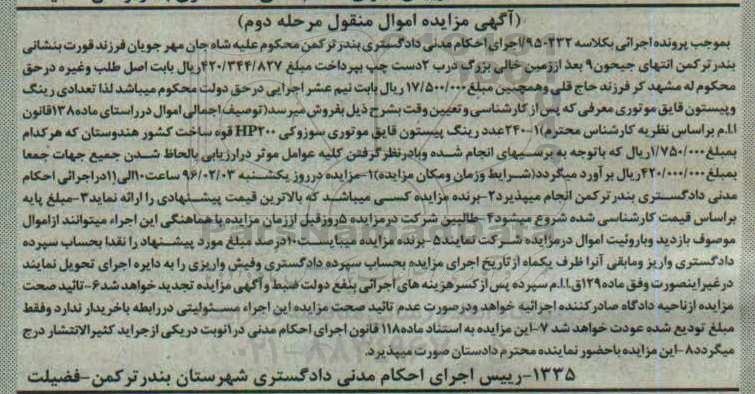 (آگهی مزایده اموال منقول مرحله دوم)
بموجب پرونده اجرائی بکلاسه ۹۵۰۲۳۲/اجرای احکام مدنی دادگستری بندرترکمن محکوم علیه شاه جان مهر جویان فرزند قورت بنشانی
بندر ترکمن انتهای جیحون۹ بعد از زمین خالی بزرگ درب ۲دست چپ بپرداخت مبلغ ۴۲۰/۳۴۴/۸۲۷ریال بابت اصل طلب وغیره درحق
محکوم له مشهد کر فرزند حاج قلی وهمچنین مبلغ ۱۷/۵۰۰/۰۰۰ریال بابت نیم عشر اجرایی درحق دولت محکوم میباشد لذا تعدادی رینگ
وپیستون قایق موتوری معرفی که پس از کارشناسی وتعیین وقت بشرح ذیل بفروش میرسد(توصیف اجمالی اموال درراستای ماده۱۳۸قانون
ا.ا.م براساس نظریه کارشناس محترم)۱-۲۴۰عدد رینگ پیستون قایق موتوری سوزوکی HP۲۰۰ قوه ساخت کشور هندوستان که هرکدام
بمبلغ۱/۷۵۰/۰۰۰ریال که باتوجه به بررسیهای انجام شده وبادرنظرگرفتن کلیه عوامل موثر درارزیابی بالحاظ شدن جمیع جهات جمعا
بمبلغ۴۲۰/۰۰۰/۰۰۰ریال برآورد میگردد(شرایط وزمان ومکان مزایده)۱-مزایده درروز یکشنبه ۹۶/۰۲/۰۳ ساعت۱۰الی۱۱دراجرائی احکام
مدنی دادگستری بندرترکمن انجام میپذیرد۲-برنده مزایده کسی میباشد که بالاترین قیمت پیشنهادی را ارائه نماید۳-مبلغ پایه
براساس قیمت کارشناسی شده شروع میشود۴-طالبین شرکت درمزایده ۵روزقبل اززمان مزایده باهماهنگی این اجراء میتوانند ازاموال
موصوف بازدید وباروئیت اموال درمزایده شرکت نمایند۵-برنده مزایده میبایست۱۰درصد مبلغ مورد پیشنهاد را نقدا بحساب سپرده
دادگستری واریز ومابقی آنرا ظرف یکماه ازتاریخ اجرای مزایده بحساب سپرده دادگستری وفیش واریزی را به دایره اجرای تحویل نمایند
درغیراینصورت وفق ماده۱۲۹ق.ا.ا.م سپرده پس ازکسرهزینه های اجرائی بنفع دولت ضبط وآگهی مزایده تجدید خواهدشد۶-تائید صحت
مزایده ازناحیه دادگاه صادرکننده اجرائیه خواهد ودرصورت عدم تائید صحت مزایده این اجراء مسئولیتی دررابطه باخریدار ندارد وفقط
مبلغ تودیع شده عودت خواهد شد ۷-این مزایده به استناد ماده۱۱۸ قانون اجرای احکام مدنی در۱نوبت دریکی ازجراید کثیرالانتشار درج
میگردد۸-این مزایده باحضور نماینده محترم دادستان صورت میپذیرد.
۱۳۳۵-رییس اجرای احکام مدنی دادگستری شهرستان بندرترکمن-فضیلت